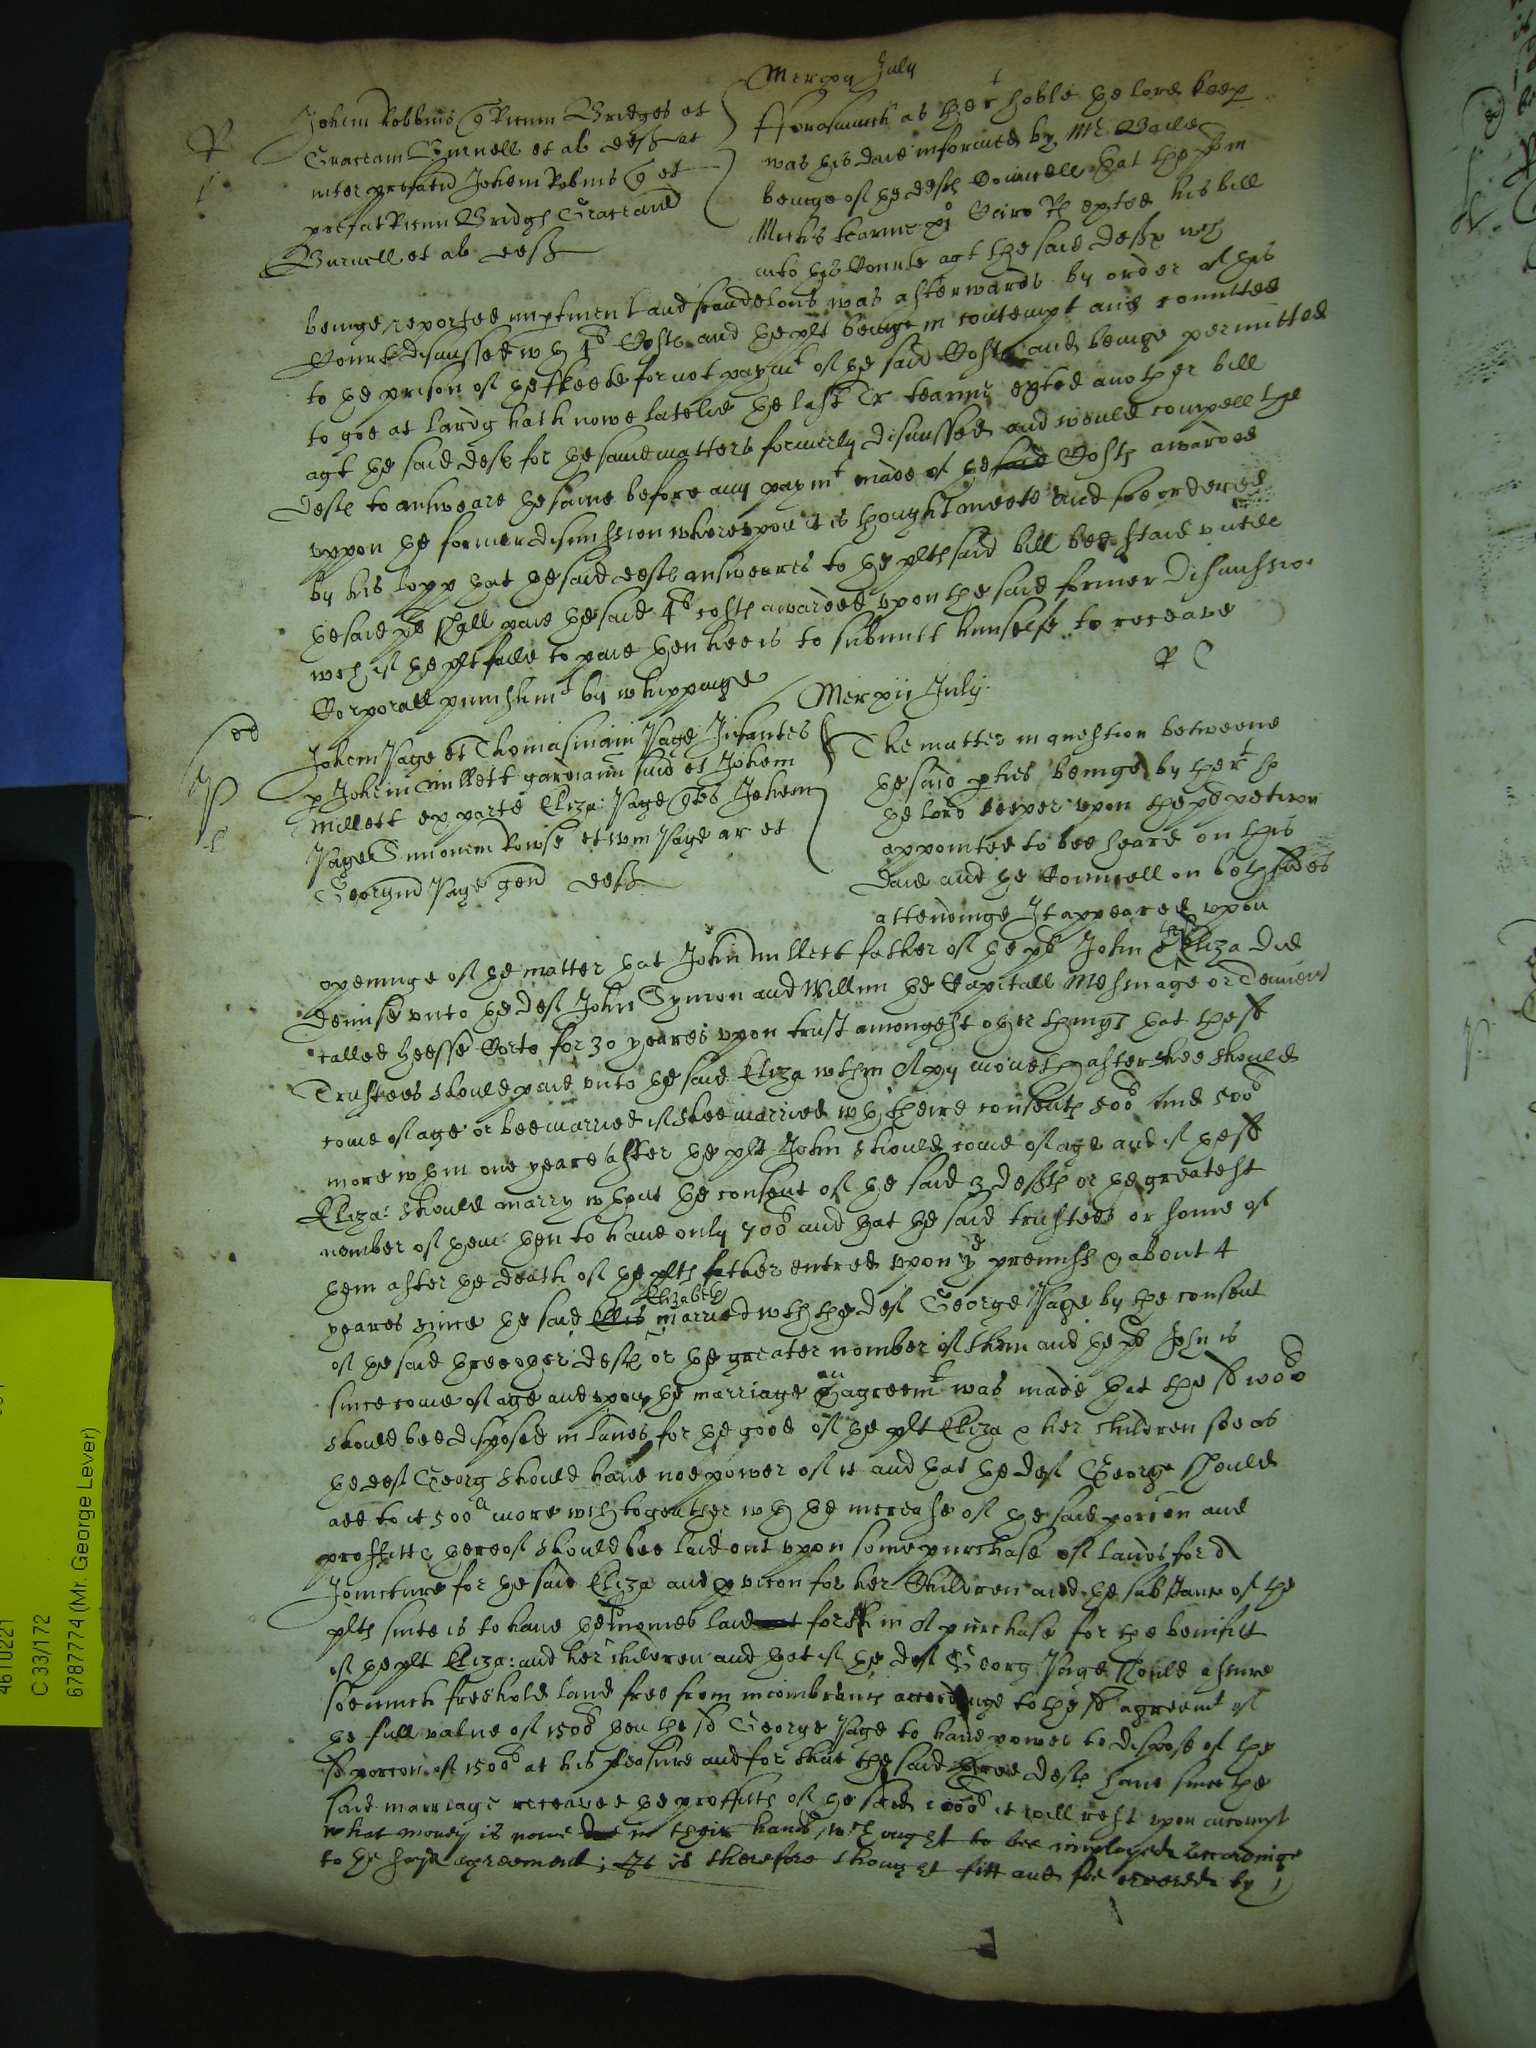 Mer xij July
Johem Robbins q Ricum Bridges et
Graceam Burnell et al defts et
inter prefatu Johem Robins q et
prefat Ricum Bridgs Graceam
Burnell et al defts
Forasmuch as the r t hoble the lord keep
was this daie informed by Mr
beinge of the defts Councell that the plt in
Michis tearme Regis exhited his bill
into this Courte agt the said defts wch
beinge reported imptinent and scandelous was afterwards by order of this
Courte dismissed wth 4li Costs and the plt beinge in contempt and comitted
to the prison of the Fleete for not paymt of the said Costs and beinge permitted
to goe at lardg hath nowe latelie the last Tr tearme exhted another bill
agt the said defts for the same matters formerly dismissed and would compell the
defts to answeare the same before any paymt made of the said Costs awarded
uppon the former dismission whereupon it is thought meete and soe ordered
by his lopp that the said defts answeares to the plts said bill bee staid untill
the said plt shall paie the said 4li costs awarded upon the said former dismissio
wch if the plt faile to paie then hee is to submitt himselfe to receave
Corporall punishmt by whippinge
Mer xij July
Johem Page et Thomasinam Page Infantes
p Johem Millett gardianu suu et Johem
Millett ex parte Eliza: Page qtes Johem
Page Simonem Rowse et Wm Page ar et
Georgiu Page gen defts
The matter in question betweene
the said pties beinge by the rt ho
the lord keeper upon the peticon
appointed to bee heard on this
daie and the Councell on both sides
attendinge It appeared upon
openinge of the matter that John Millett father of the plt John & Eliza did
demise unto the def John Symon and Willm the Capitall Messuage or Tenemt
called Heesse Corte for 30 yeares upon trust amongest other things that these
Trustees should paie unto the said Eliza wthin xij moneths after shee should
come of age or bee married if shee married wth theire consents 500li And 500li
more wthin one yeare after the plt John should come of age and if the sd
Eliza: should marry wthout the consent of the said 3 defts or the greatest
nomber of them then to have only 700li and that the said trustees or some of
them after the death of the plts father entred upon the premisses & about 4
yeares since the said Ellis Elizabeth married wth the def George Page by the consent
of the said three other defts or the greater nomber of them and the plt John is
since come of age and upon the marriage an agreemt was made that the sd 1000li
should bee disposed in lands for the good of the plt Eliza & her children soe as
the def Georg should have noe power of it and that the def George should
add to it 500li more wch together wth the increase of the said porcon and
proffitts thereof should bee laid out upon some purchase of lands for a
Joincture for the said Eliza and pvicon for her Children and the substance of the
plts suite is to have the moneis laid forth in A purchase for the benifitt
of the plt Eliza: and her children and that if the def Georg Page should assure
soe much freehold land free from incombrants accordinge to the sd agreemt of
the full value of 1500li then the sd George Page to have power to dispose of the
sd porcon of 1500li at his pleasure and for that the said three defts have since the
said marriage receaved the proffitts of the said 1000li it will rest upon accompt
what money is nowe due in their hands wch ought to bee imployed accordinge
to the said agreement; It is therefore thought fitt and soe ordered by
4610221
C 33/172
6787774 (Mr. George Lever)